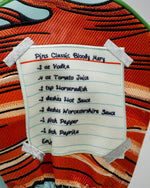 Pins Classic Bloody Mary
oz Vodka
oz Tomato Juice
tsp Horseradish
dashes Hot Sauce
dashes Worcestershire Sauce
tsp Pepper
tsp Paprika